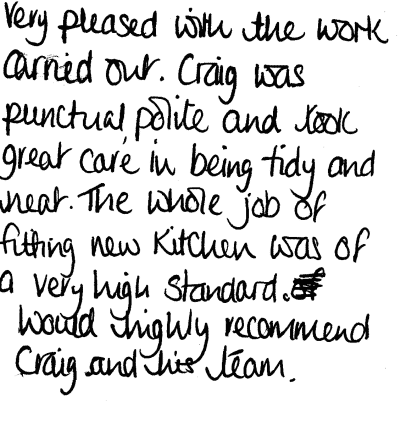 Very pleased with the work
carried out. Craig was
punctual, polite and took
great care in being tidy and
neat. The whole job of
fitting new Kitchen was of
a very high standard.
Would highly recommend
Craig and his team.